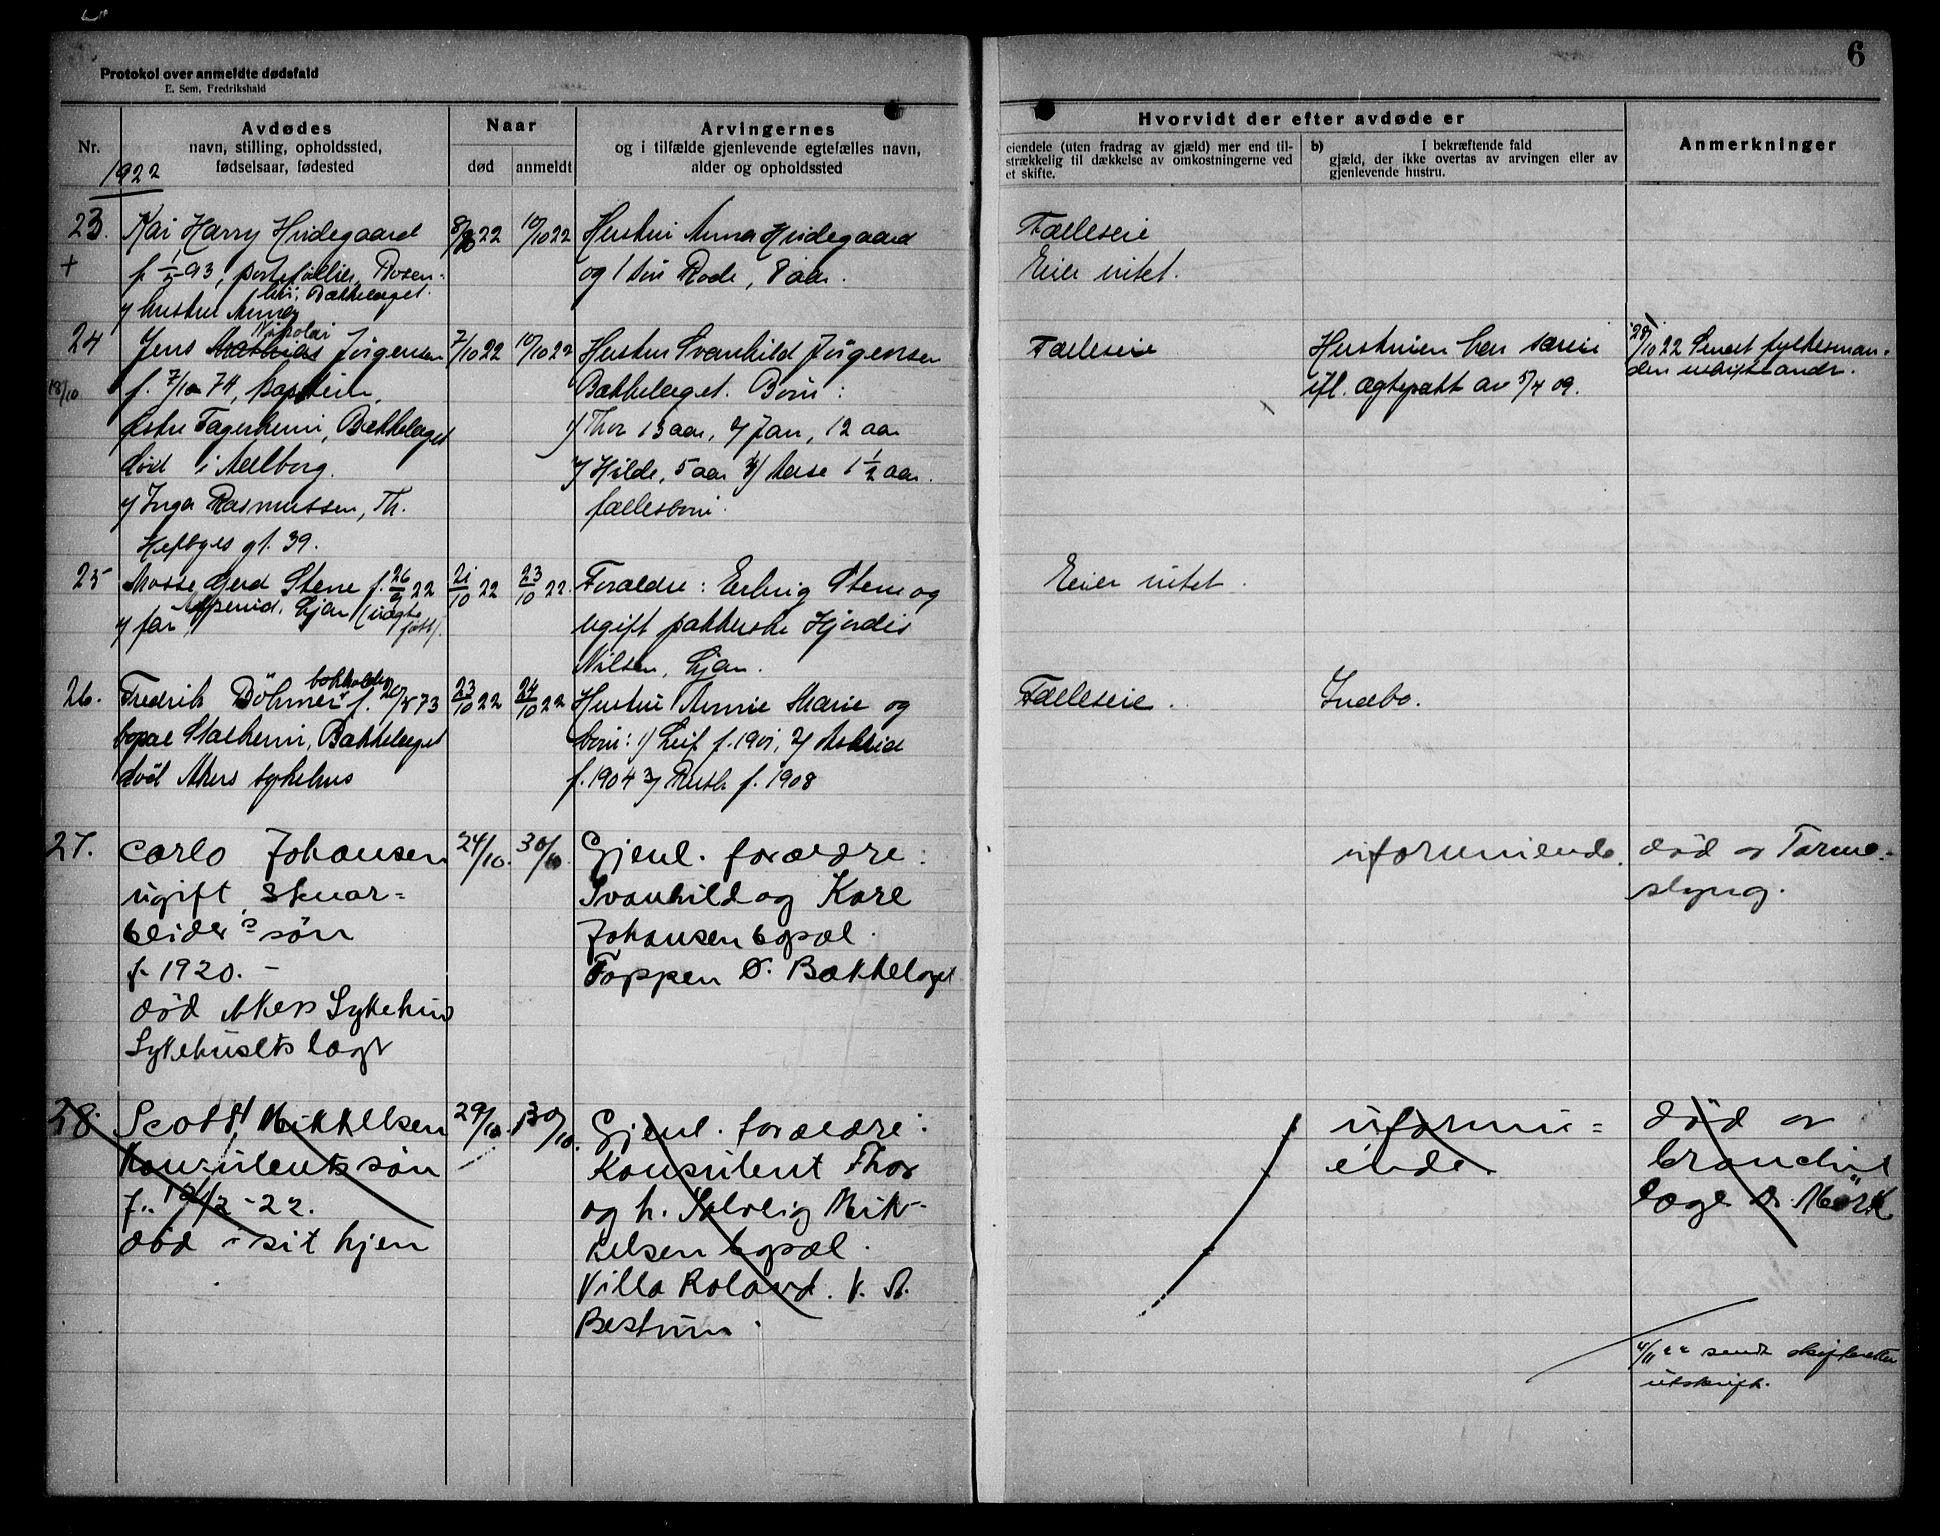 6
Protokol over anmeldte dødsfald
E. Sem, Fredrikshald
Nr.
Avdødes
navn, stilling, opholdssted,
fødselsaar, fødested
Naar
død
anmeldt
Arvingernes
og i tilfælde gjenlevende egtefælles navn,
alder og opholdssted
Hvorvidt der efter avdøde er
eiendele (uten fradrag av gjæld) mer end til-
strækkelig til dækkelse av omkostningerne ved
et skifte.
b) I bekræftende fald
gjæld, der ikke overtas av arvingen eller av
gjenlevende hustru.
Anmerkninger
1922
23.
+
Kai Harry Hridegaard
f. 1/5 93, porteføllier, Rosen-
Bækkelaget.
v/ hustru Anna
10/10 22
Hustru Anna Hridegaard
og 1 Rode, 8 aar.
Fælleseie
Eier intet.
24
18/10
Nikolai
Jens Mathias Jörgensen
f. 7/10 74, kaptein,
Fagerheim, Bækkelaget
død i Aalborg.
v/ Inga Rasmussen, Th.
Heftyes gt. 39.
7/10 22
10/10 22
Hustru Svanhild Jörgensen
Bækkelaget. Born:
1/ Thor 13 aar, 2/ Jan, 12 aar
3/ Hilde, 5 aar 4/ Aase 1 1/2 aar.
fællesborn.
Fælleseie
Hustruen har særeie
ifl. ægtepakt av 5/4 09.
28/10 22 Sendt fylkesman-
den utskrift
25
Mosse Gerd Stene f. 26/9 22
v/ far Ljan (uægte
født).
21/10 22
23/10 22
Foraldre: Erling Stene og
ugift pakkerske Hjördis
Nilsen, Ljan.
Eier intet.
26.
bokholder
Fredrik Böhmer f. 20/8 73
bopæl Stalheim, Bækkelaget
död Akers sykehus
23/10 22
24/10 22
Hustru Annie Marie og
born: 1) Leif f. 1901, 2/ Astrid
f. 1904 3/ Ruth f. 1908
Fælleseie.
Indbo.
27.
Carlo Johansen
ugift, skuar=
beider's sön
f. 1920. -
død Akers Sykehus
Sykehusets læge
24/10.
30/10.
Gjenl. foraeldre:
Svanhild og Karl
Johansen bopæl.
Toppen Ø. Bækkelaget
uformuende.
död av Tarm-
slyng.
28.
Scott Mikkelsen
Konsulents sön
f. 19/2-22.
död i sit hjem
29/10.
30/10.
Gjenl. foraeldre:
Konsulent Thor
og h. Solveig Mik-
kelsen bopæl.
Villa Roland. V. A.
Bestum.
uformu=
ende.
död av
bronchit
læge Dr. Mörk
4/11 22 sendt skifteretten
utskrift.